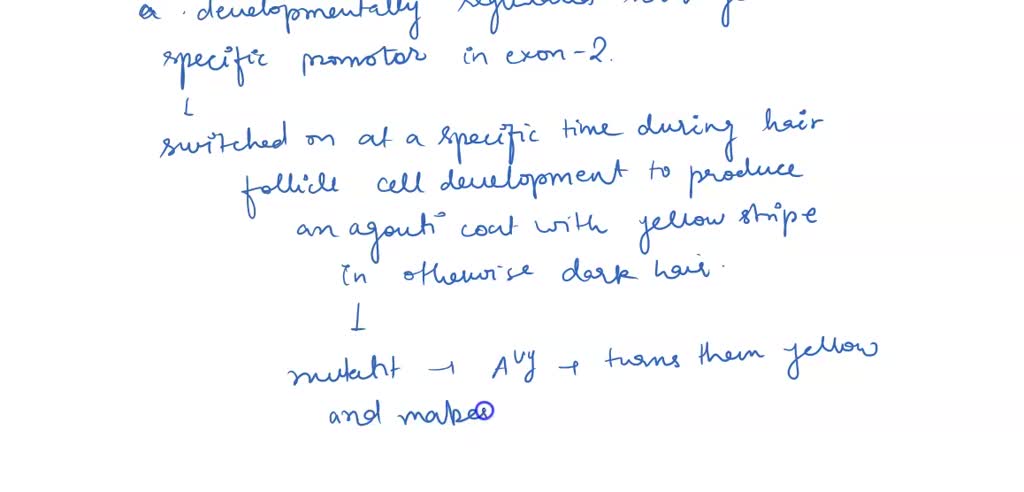 a developmentally
specific promotor in exon-2.
↓
switched on at a specific time during hair
follicle cell development to produce
an agouti coat with yellow stripe
in otherwise dark hair.
↓
mutant → A^vy → turns them yellow
and makes